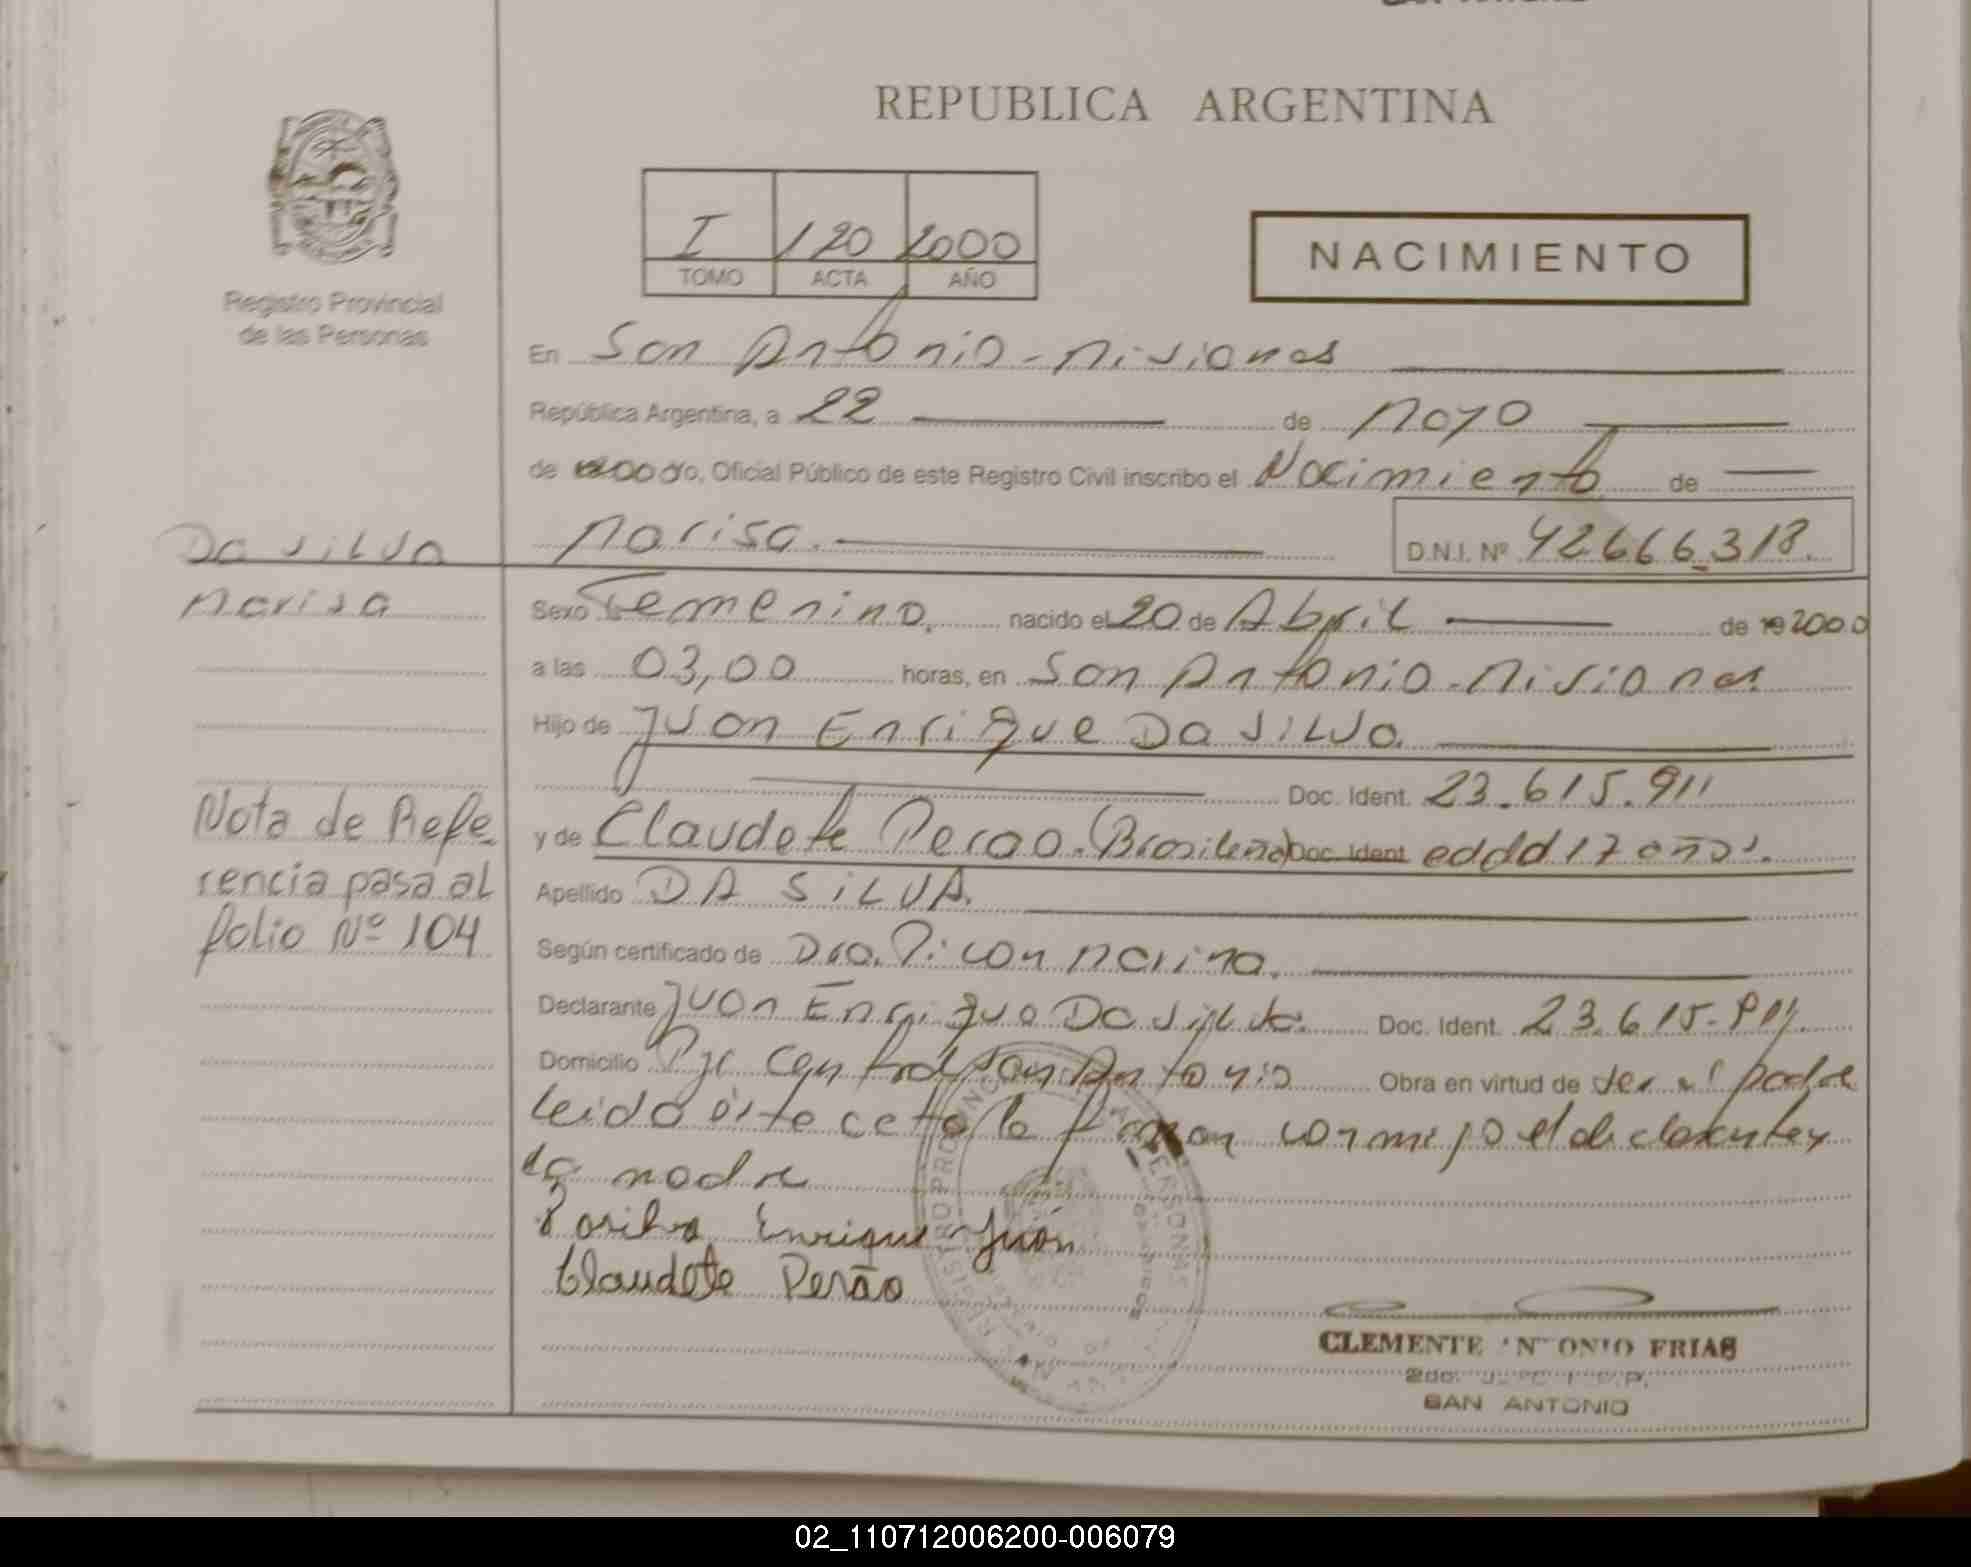 REPUBLICA ARGENTINA
I 120 2000
TOMO ACTA AÑO
NACIMIENTO
Registro Provincial
de las Personas
En San Antonio - Misiones
República Argentina, a 22 de Mayo
de 2000 Yo, Oficial Público de este Registro Civil inscribo el Nacimiento de
Da Silva
Marisa
Marisa. D.N.I. Nº 42666.318.
Sexo Femenino. nacido el 20 de Abril de 19 2000
a las 03,00 horas, en San Antonio - Misiones
Hijo de Juan Enrique Da Silva.
Doc. Ident. 23.615.911
y de Claudete Perao. (Brasileña) Doc. Ident edad 17 años.
Apellido DA SILVA.
Nota de Refe-
rencia pasa al
folio Nº 104
Según certificado de Dra. Picon Marina.
Declarante Juan Enrique Da Silva. Doc. Ident. 23.615.911.
Domicilio Pje Central San Antonio Obra en virtud de ser el padre
leido este acta la firman conmigo el declarante y
la madre
Enrique Juán
Claudete Perão
CLEMENTE ANTONIO FRIAS
SAN ANTONIO
02_110712006200-006079